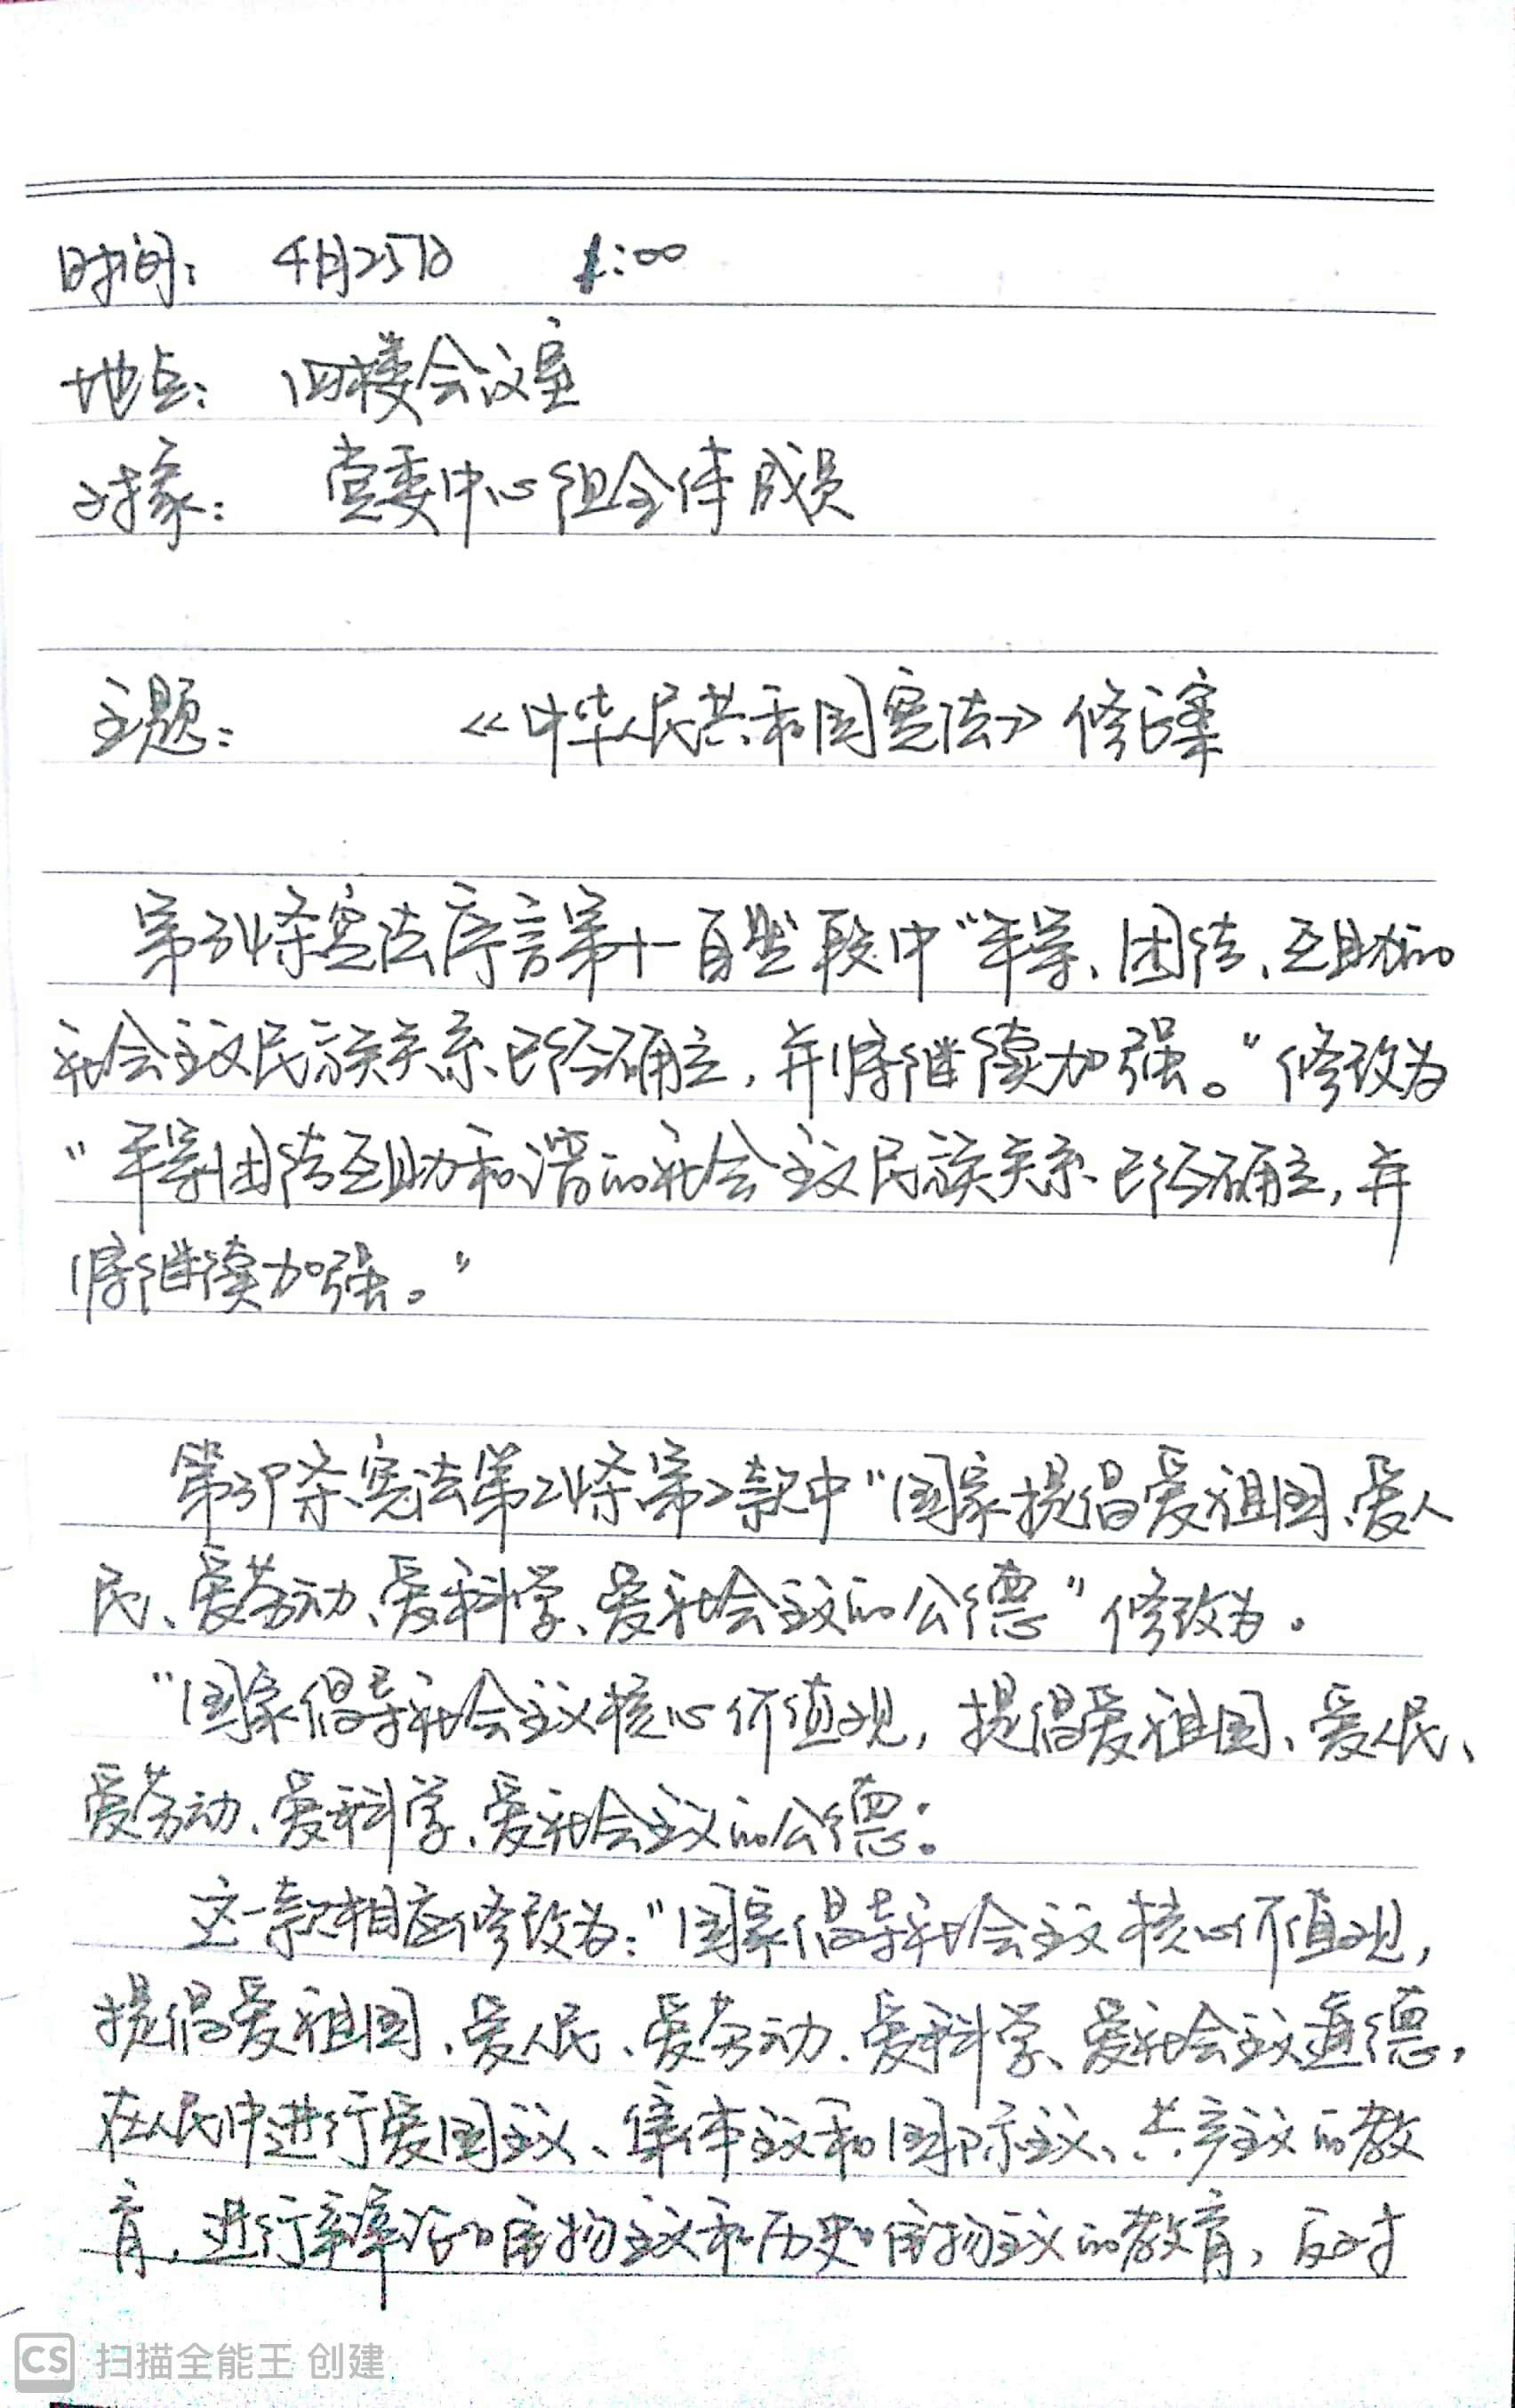 时间： 4月25日 1:00
地点： 旧楼会议室
对象： 党委中心组全体成员
主题： 《中华人民共和国宪法》修正案
第34条宪法序言第十一自然段中“平等、团结、互助的
社会主义民族关系已经确立，并将继续加强。”修改为
“平等团结互助和谐的社会主义民族关系已经确立，并
将继续加强。”
第39条宪法第24条第2款中“国家提倡爱祖国、爱人
民、爱劳动、爱科学、爱社会主义的公德”修改为。
“国家倡导社会主义核心价值观，提倡爱祖国、爱人民、
爱劳动、爱科学、爱社会主义的公德。
这一款相应修改为：“国家倡导社会主义核心价值观，
提倡爱祖国、爱人民、爱劳动、爱科学、爱社会主义道德，
在人民中进行爱国主义、集体主义和国际主义、共产主义的教
育，进行辩证唯物主义和历史唯物主义的教育，反对
CS 扫描全能王 创建